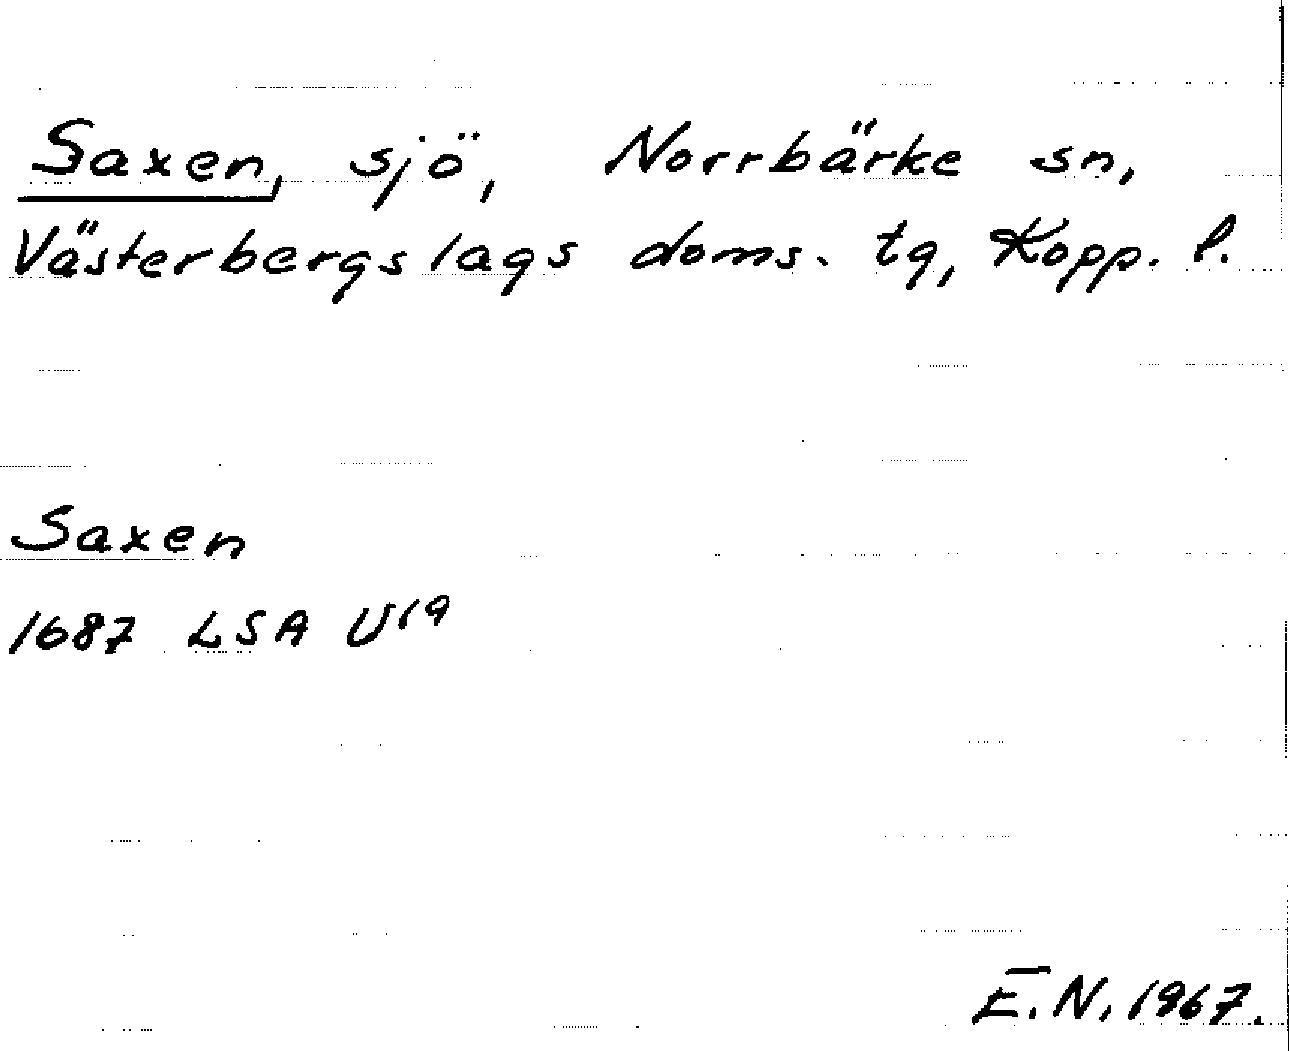 Saxen, sjö, Norrbärke sn,
Västerbergslags doms. tg, Kopp. l.
Saxen
1687 LSA U19
E.N. 1967.